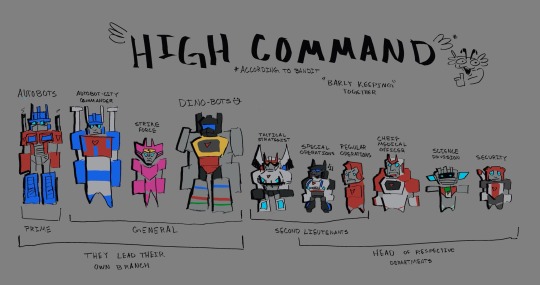 HIGH COMMAND
*ACCORDING TO BANDIT
"BARLY KEEPING"
TOGETHER
AUTOBOTS
AUTOBOT-CITY
COMMANDER
STRIKE
FORCE
DINO-BOTS
TACTICAL
STRATEGIST
SPECIAL
OPERATIONS
REGULAR
OPERATIONS
CHIEF
MEDICAL
OFFICER
SCIENCE
DIVISION
SECURITY
PRIME
GENERAL
SECOND LIEUTENANTS
THEY LEAD THEIR
OWN BRANCH
HEAD OF RESPECTIVE
DEPARTMENTS